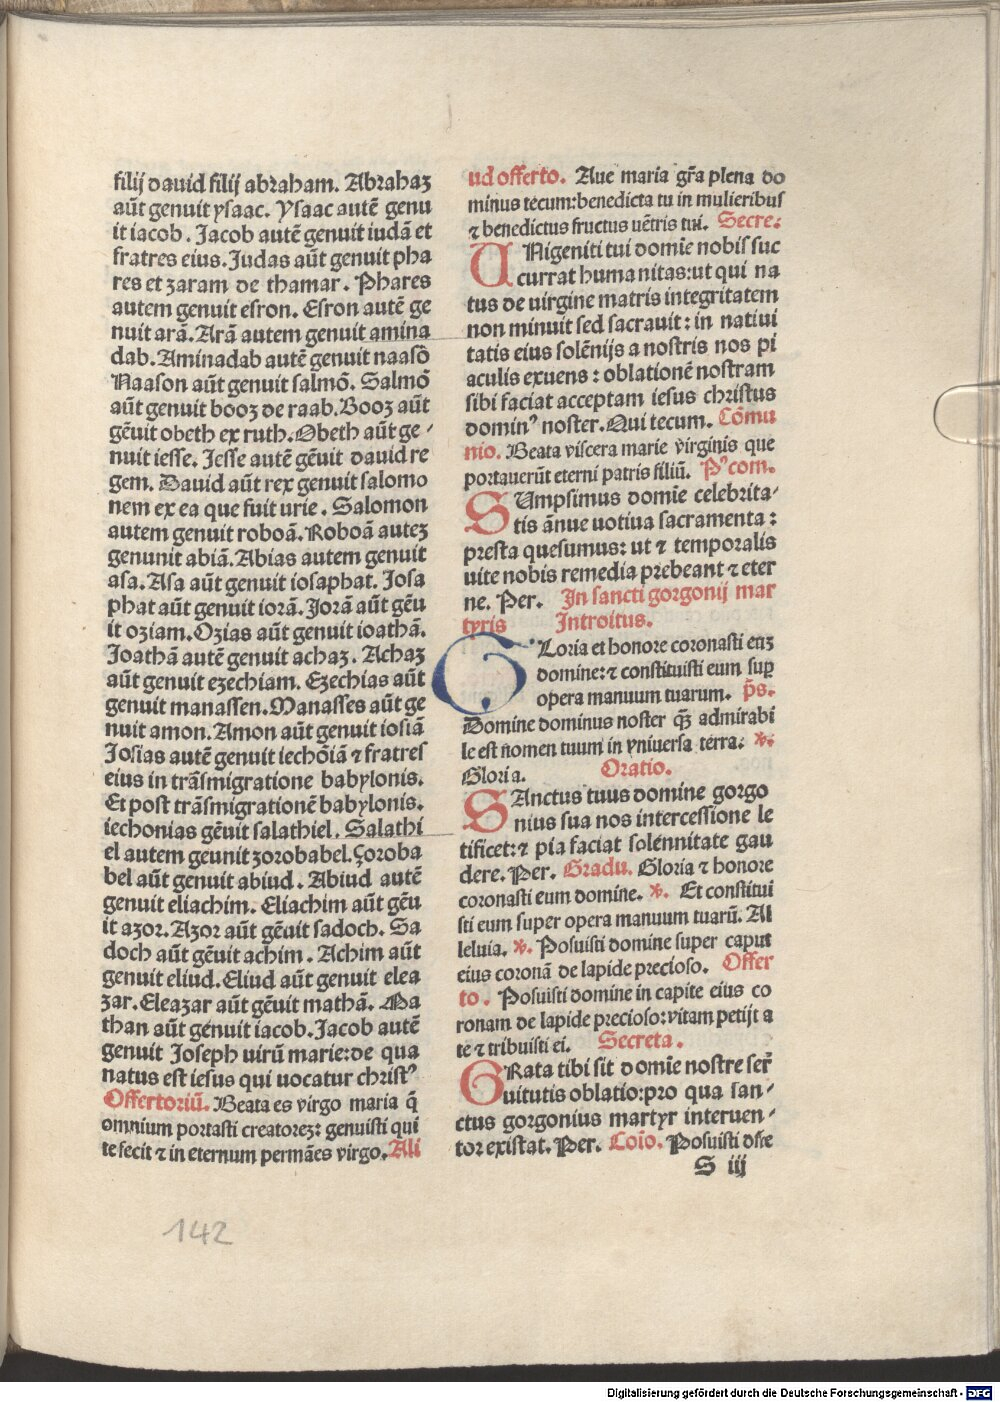 filij dauid filij abraham. Abrahaȝ
aũt genuit ysaac. Ysaac autẽ genu
it iacob. Jacob autẽ genuit iudã et
fratres eius. Judas aũt genuit pha
res et zaram de thamar. Phares
autem genuit esron. Esron autẽ ge
nuit arã. Arã autem genuit amina
dab. Aminadab autẽ genuit naasõ
Naason aũt genuit salmõ. Salmõ
aũt genuit booz de raab. Booz aũt
gẽuit obeth ex ruth. Obeth aũt ge
nuit iesse. Jesse autẽ gẽuit dauid re
gem. Dauid aũt rex genuit salomo
nem ex ea que fuit urie. Salomon
autem genuit roboã. Roboã auteȝ
genunit abiã. Abias autem genuit
asa. Asa aũt genuit iosaphat. Josa
phat aũt genuit iorã. Jorã aũt gẽu
it oziam. Ozias aũt genuit ioathã.
Joathã autẽ genuit achaz. Achaz
aũt genuit ezechiam. Ezechias aũt
genuit manassen. Manasses aũt ge
nuit amon. Amon aũt genuit iosiã
Josias autẽ genuit iechõiã ⁊ fratres
eius in trãsmigratione babylonis.
Et post trãsmigrationẽ babylonis.
iechonias gẽuit salathiel. Salathi
el autem geunit zorobabel. Çoroba
bel aũt genuit abiud. Abiud autẽ
genuit eliachim. Eliachim aũt gẽu
it azor. Azor aũt gẽuit sadoch. Sa
doch aũt gẽuit achim. Achim aũt
genuit eliud. Eliud aũt genuit elea
zar. Eleazar aũt gẽuit mathã. Ma
than aũt genuit iacob. Jacob autẽ
genuit Joseph uirũ marie: de qua
natus est iesus qui uocatur christꝰ
Offertoriũ. Beata es virgo maria q̃
omnium portasti creatoreȝ: genuisti qui
te fecit ⁊ in eternum permães virgo. Ali
ud offerto. Aue maria gr̃a plena do
minus tecum: benedicta tu in mulieribus
⁊ benedictus fructus uẽtris tui. Secre:
UNigeniti tui domĩe nobis suc
currat humanitas: ut qui na
tus de uirgine matris integritatem
non minuit sed sacrauit: in natiui
tatis eius solẽnijs a nostris nos pi
aculis exuens: oblationẽ nostram
sibi faciat acceptam iesus christus
dominꝰ noster. Qui tecum. Cõmu
nio. Beata viscera marie virginis que
portauerũt eterni patris filiũ. Pꝰcom.
SUmpsimus domĩe celebrita
tis ãnue uotiua sacramenta:
presta quesumus: ut ⁊ temporalis
uite nobis remedia prebeant ⁊ eter
ne. Per. In sancti gorgonij mar
tyris Introitus.
GLoria et honore coronasti euȝ
domine: ⁊ constituisti eum sup̃
opera manuum tuarum. p̃s.
Domine dominus noster q̃ȝ admirabi
le est nomen tuum in vniuersa terra: ℣.
Gloria. Oratio.
SAnctus tuus domine gorgo
nius sua nos intercessione le
tificet: ⁊ pia faciat solennitate gau
dere. Per. Gradu. Gloria ⁊ honore
coronasti eum domine. ℣. Et constitui
sti eum super opera manuum tuarũ. Al
leluia. ℣. Posuisti domine super caput
eius coronã de lapide precioso. Offer
to. Posuisti domine in capite eius co
ronam de lapide precioso: vitam petijt a
te ⁊ tribuisti ei. Secreta.
GRata tibi sit domĩe nostre ser̃
uitutis oblatio: pro qua san
ctus gorgonius martyr interuen
tor existat. Per. Coĩo. Posuisti dñe
S iij
142
Digitalisierung gefördert durch die Deutsche Forschungsgemeinschaft - DFG